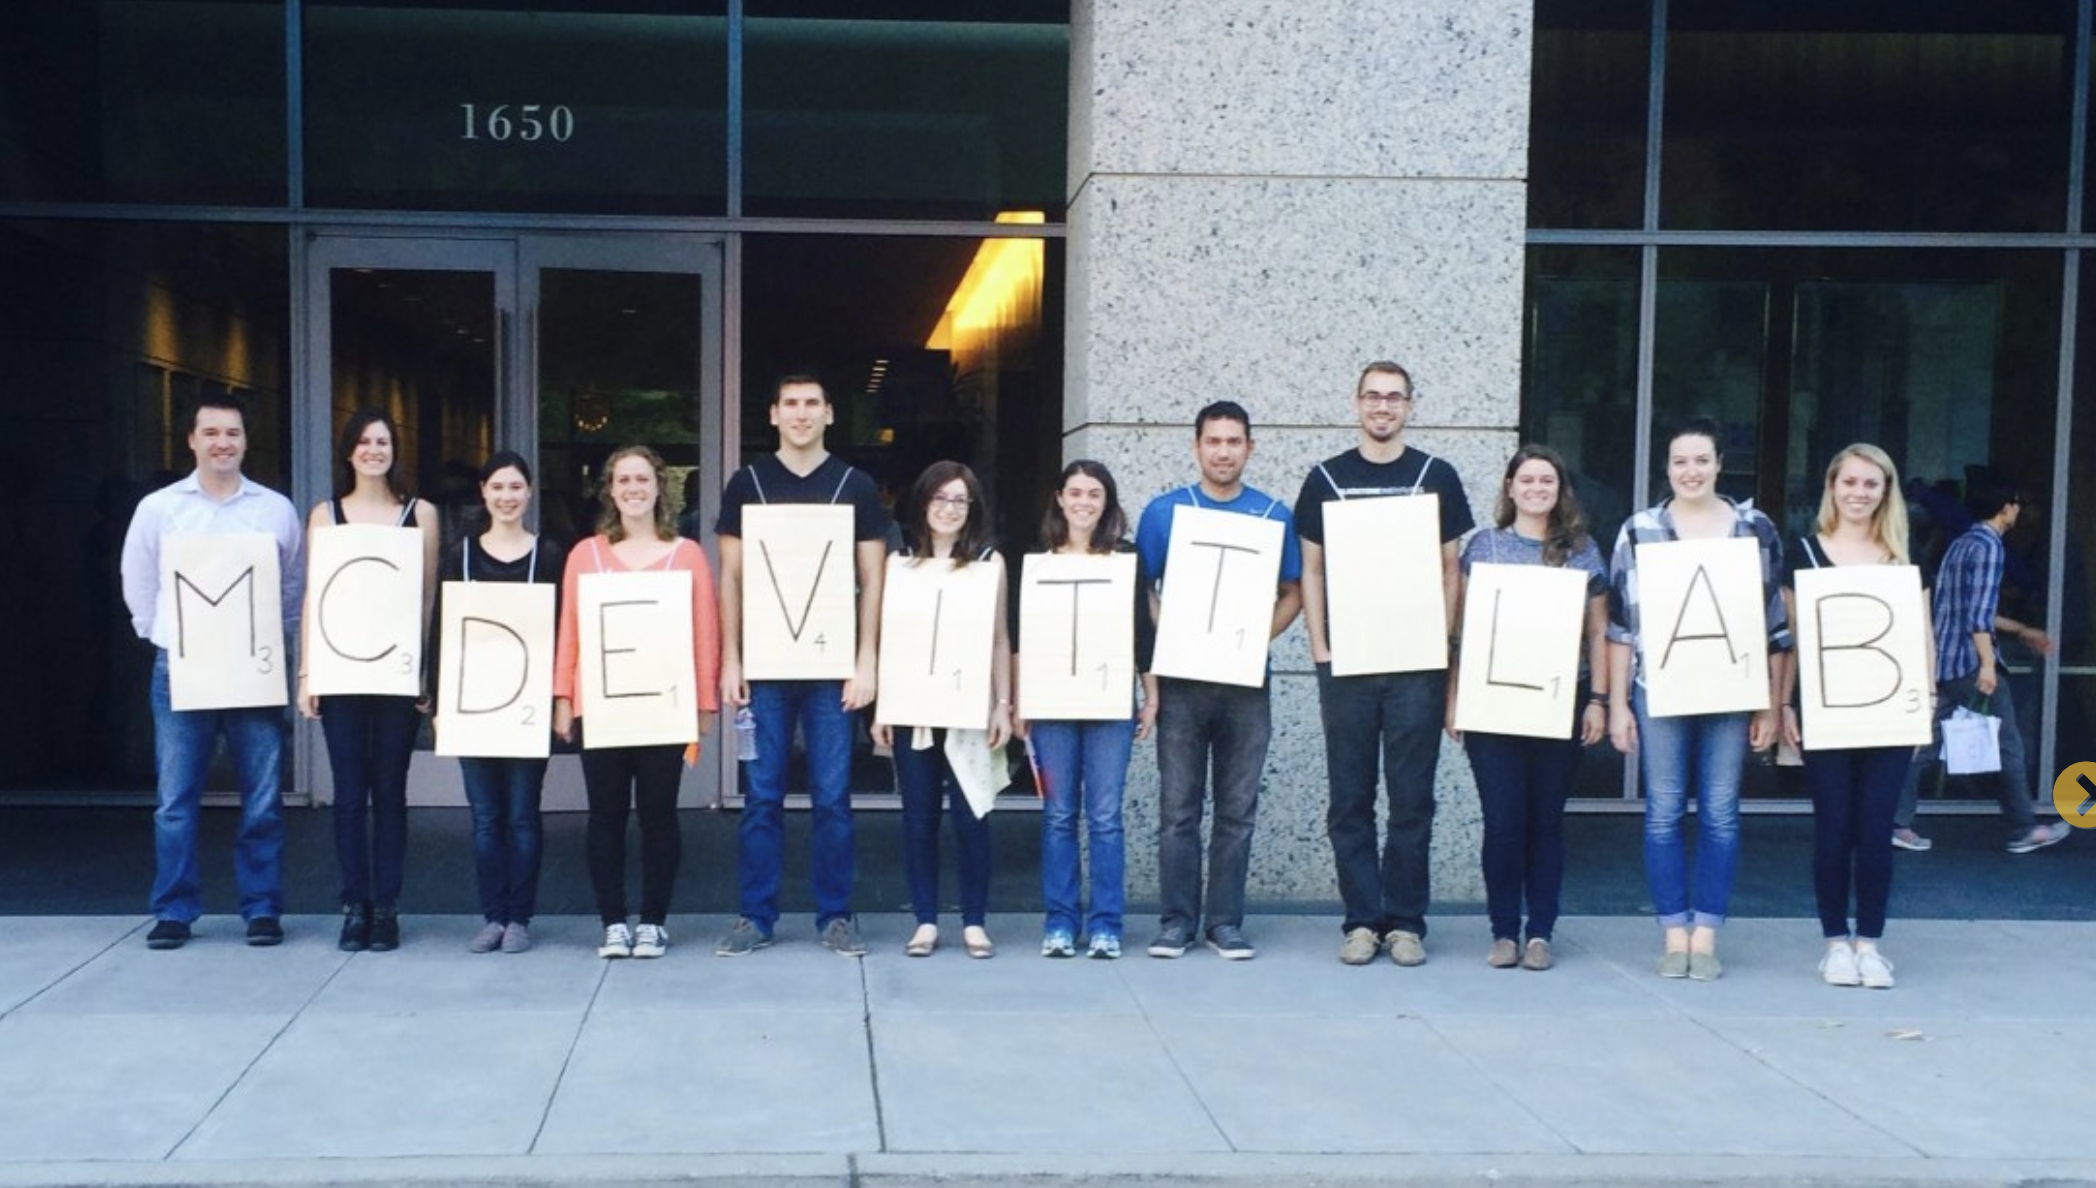 1650
M3 C3 D2 E1 V4 I1 T1 T1 L1 A1 B3